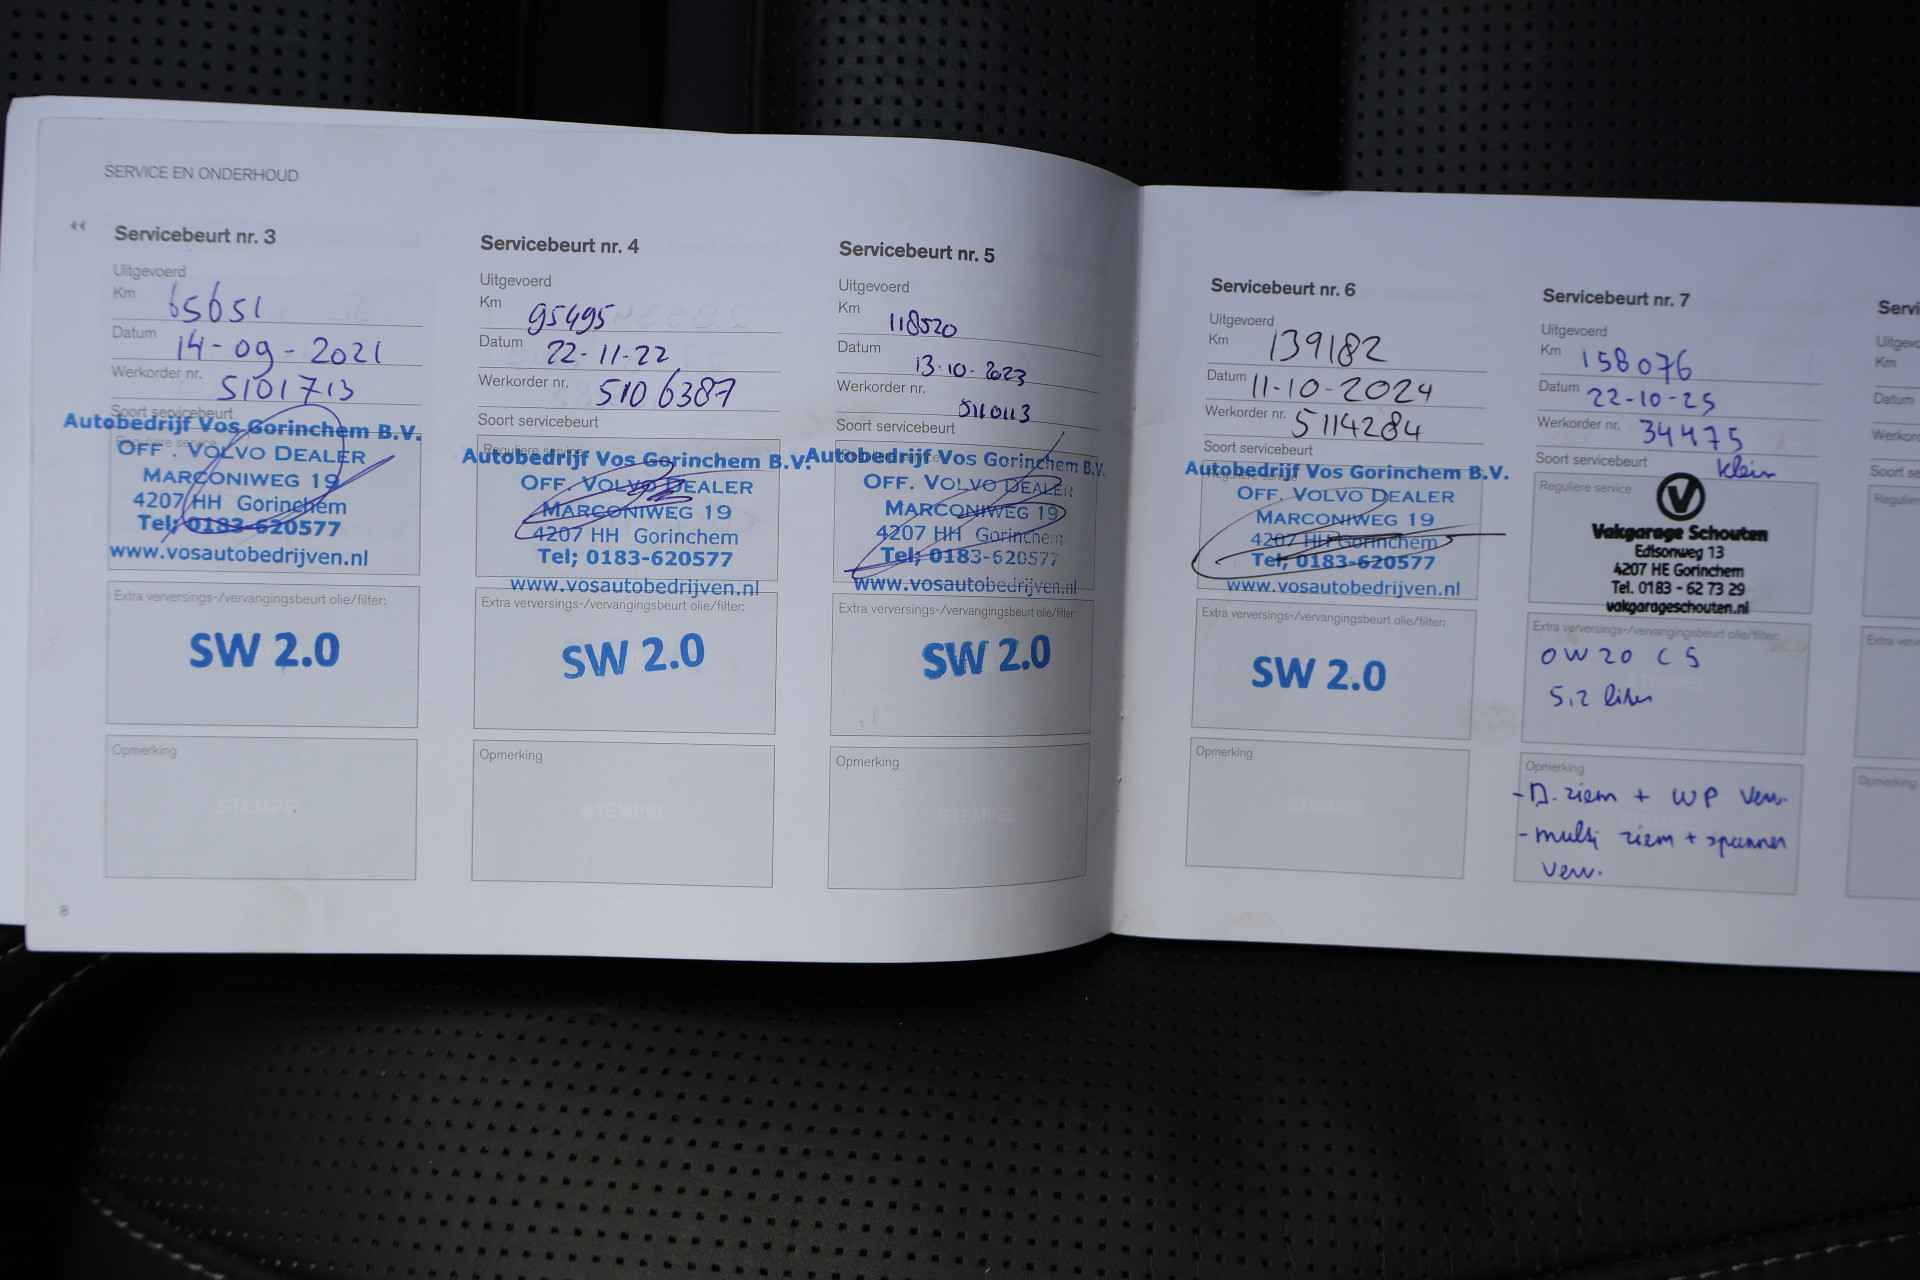 SERVICE EN ONDERHOUD
Servicebeurt nr. 3
Uitgevoerd
Km 65651
Datum 14-09-2021
Werkorder nr. 5101713
Soort servicebeurt
Reguliere service
Autobedrijf Vos Gorinchem B.V.
OFF. VOLVO DEALER
MARCONIWEG 19
4207 HH Gorinchem
Tel; 0183-620577
www.vosautobedrijven.nl
Extra verversings-/vervangingsbeurt olie/filter:
SW 2.0
Opmerking
STEMPEL
8
Servicebeurt nr. 4
Uitgevoerd
Km 95495
Datum 22-11-22
Werkorder nr. 5106387
Soort servicebeurt
Autobedrijf Vos Gorinchem B.V.
OFF. VOLVO DEALER
MARCONIWEG 19
4207 HH Gorinchem
Tel; 0183-620577
www.vosautobedrijven.nl
Extra verversings-/vervangingsbeurt olie/filter:
SW 2.0
Opmerking
STEMPEL
Servicebeurt nr. 5
Uitgevoerd
Km 118520
Datum 13-10-2023
Werkorder nr. 5110113
Soort servicebeurt
Autobedrijf Vos Gorinchem B.V.
OFF. VOLVO DEALER
MARCONIWEG 19
4207 HH Gorinchem
Tel; 0183-620577
www.vosautobedrijven.nl
Extra verversings-/vervangingsbeurt olie/filter:
SW 2.0
Opmerking
STEMPEL
Servicebeurt nr. 6
Uitgevoerd
Km 139182
Datum 11-10-2024
Werkorder nr. 5114284
Soort servicebeurt
Autobedrijf Vos Gorinchem B.V.
OFF. VOLVO DEALER
MARCONIWEG 19
4207 HH Gorinchem
Tel; 0183-620577
www.vosautobedrijven.nl
Extra verversings-/vervangingsbeurt olie/filter:
SW 2.0
Opmerking
Servicebeurt nr. 7
Uitgevoerd
Km 158076
Datum 22-10-25
Werkorder nr. 34475
Soort servicebeurt klein
Reguliere service
Vakgarage Schouten
Edisonweg 13
4207 HE Gorinchem
Tel. 0183 - 62 73 29
vakgarageschouten.nl
Extra verversings-/vervangingsbeurt olie/filter:
0W20 C5
5,2 liter
Opmerking
- D. riem + WP verv.
- multi riem + spanner
verv.
Km
Datum
Opmerking